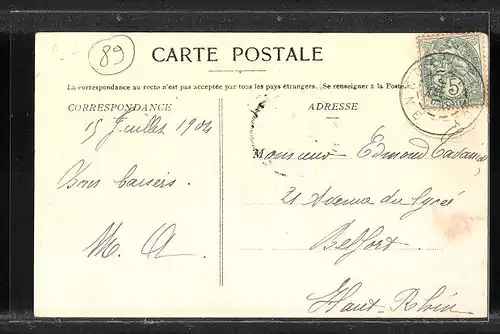 89
CARTE POSTALE
La correspondance au recto n'est pas acceptée par tous les pays étrangers. (Se renseigner à la Poste.)
CORRESPONDANCE
ADRESSE
15 Juillet 1904
Bons baisers.
M. A
Monsieur Edmond
21 Avenue du Lycée
Belfort
Haut-Rhin
5